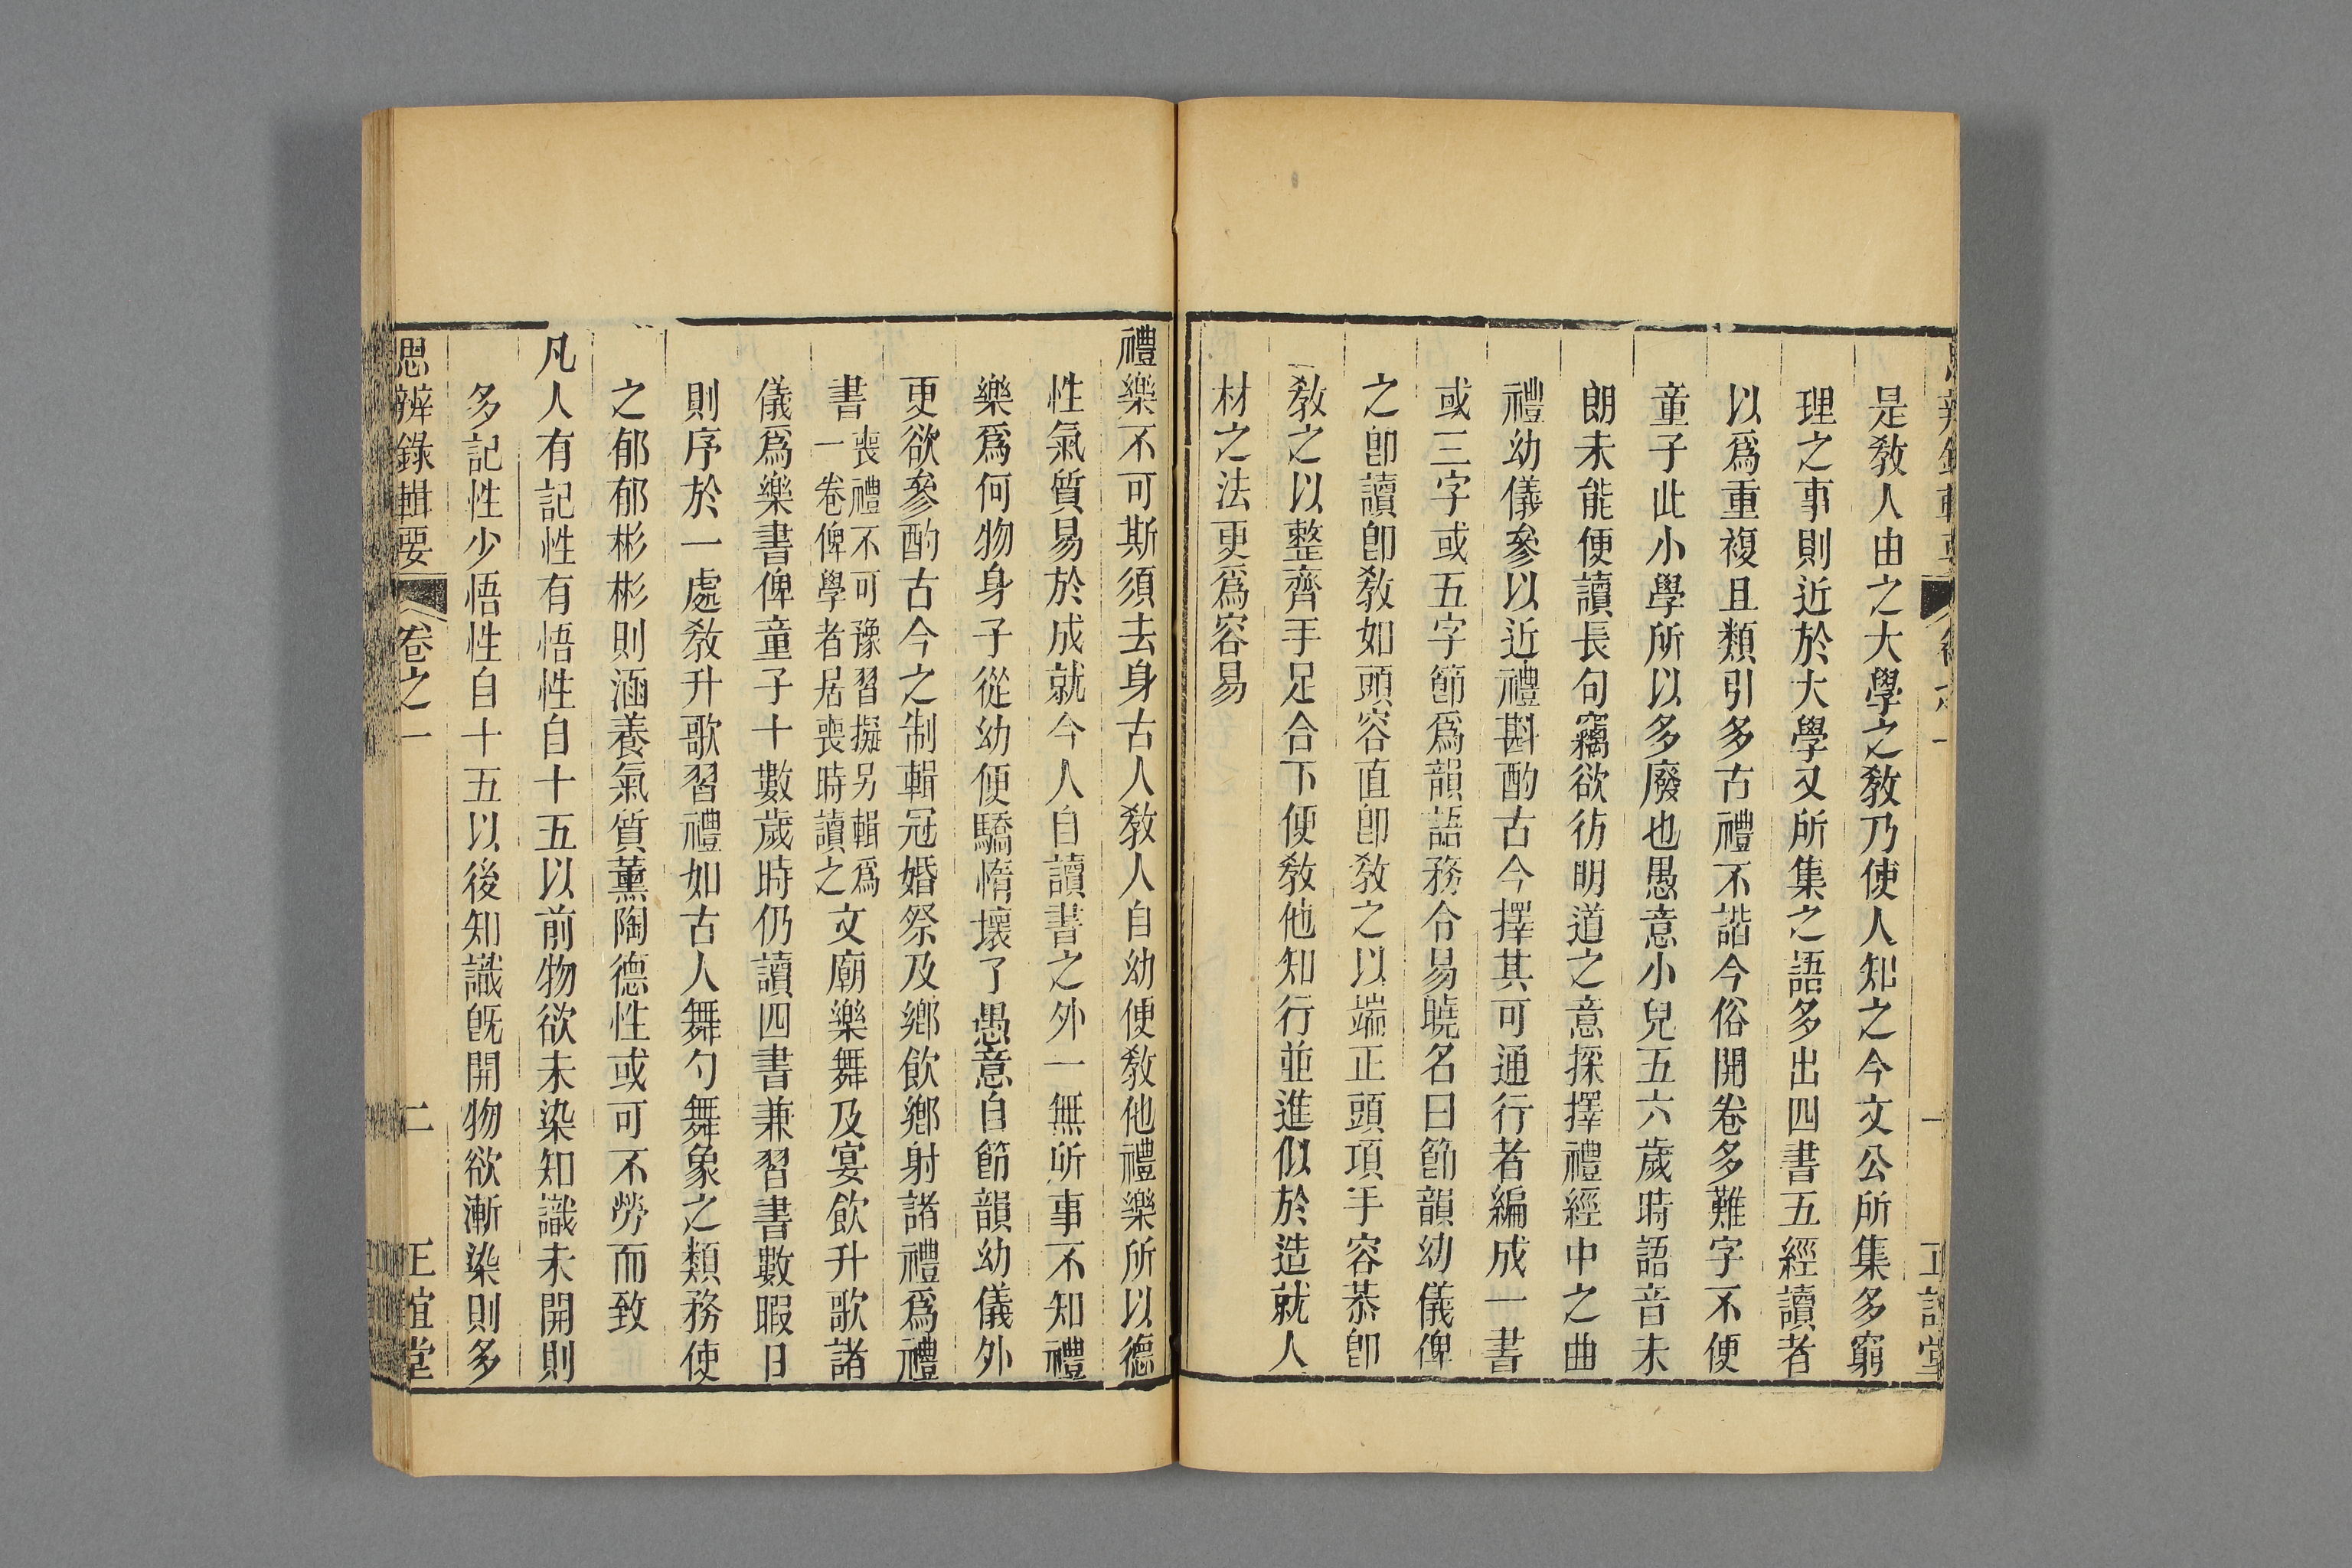 是敎人由之大學之敎乃使人知之今文公所集多窮
理之事則近於大學又所集之語多出四書五經讀者
以爲重複且類引多古禮不諧今俗開卷多難字不便
童子此小學所以多廢也愚意小兒五六歲時語音未
朗未能便讀長句竊欲彷明道之意採擇禮經中之曲
禮幼儀參以近禮斟酌古今擇其可通行者編成一書
或三字或五字節爲韻語務令易曉名曰節韻幼儀俾
之卽讀卽敎如頭容直卽敎之以端正頭項手容恭卽
敎之以整齊手足合下便敎他知行並進似於造就人
材之法更爲容易
禮樂不可斯須去身古人敎人自幼便敎他禮樂所以德
性氣質易於成就今人自讀書之外一無所事不知禮
樂爲何物身子從幼便驕惰壞了愚意自節韻幼儀外
更欲參酌古今之制輯冠婚祭及鄕飮鄕射諸禮爲禮
書喪禮不可豫習擬另輯爲一卷俾學者居喪時讀之文廟樂舞及宴飮升歌諸
儀爲樂書俾童子十數歲時仍讀四書兼習書數暇日
則序於一處敎升歌習禮如古人舞勺舞象之類務使
之郁郁彬彬則涵養氣質薰陶德性或可不勞而致
凡人有記性有悟性自十五以前物欲未染知識未開則
多記性少悟性自十五以後知識旣開物欲漸染則多
思辨錄輯要 卷之一 二 正誼堂